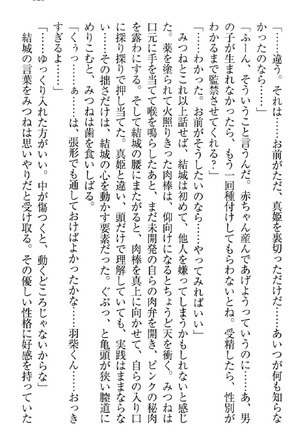 「違う。それは……お前が、真姫を裏切って……あいつが何も知らな
かったのなら……」
「ふーん、そういうこと言うんだ。赤ちゃん産んであげようっていうのに……あ、男
の子が生まれなかったら、もう一回種付けしてもらわないとね。受精したら、性別が
わかるまで監禁させてくれる?」
「……わかった。お前がそうしたいのなら……やってみればいい」
みつねとこれ以上話せば、結城は初めて、他人を嫌ってしまうかもしれないと感じ
た。薬を塗られて火照りきった肉棒は、仰向けになるとちょうど天を衝く。みつねは
口元に手を当てて喉を鳴らすと、まだ未開発の自らの肉弁を開き、ピンクの秘肉
を露わにする。そして結城の腰にまたがると、肉棒を真上に向かせて、自らの入り口
に探り探りで押し当てた。真姫と違い、頭だけで理解していても、実践はままならな
い。その拙さだけは、結城の心を動かす要素だった。ぐぷっ、と亀頭が狭い膣道に
めりこむと、みつねは歯を食いしばる。
「くぅっ……ぁ……は、張形でも通しておけばよかったかな……羽柴くん……おっき
すぎるよ……」
「……ゆっくり入れた方がいい。中が傷つくと、動くどころじゃないからな」
結城の言葉をみつねは思いやりだと受け取る。その優しい性格に好感を持っていた